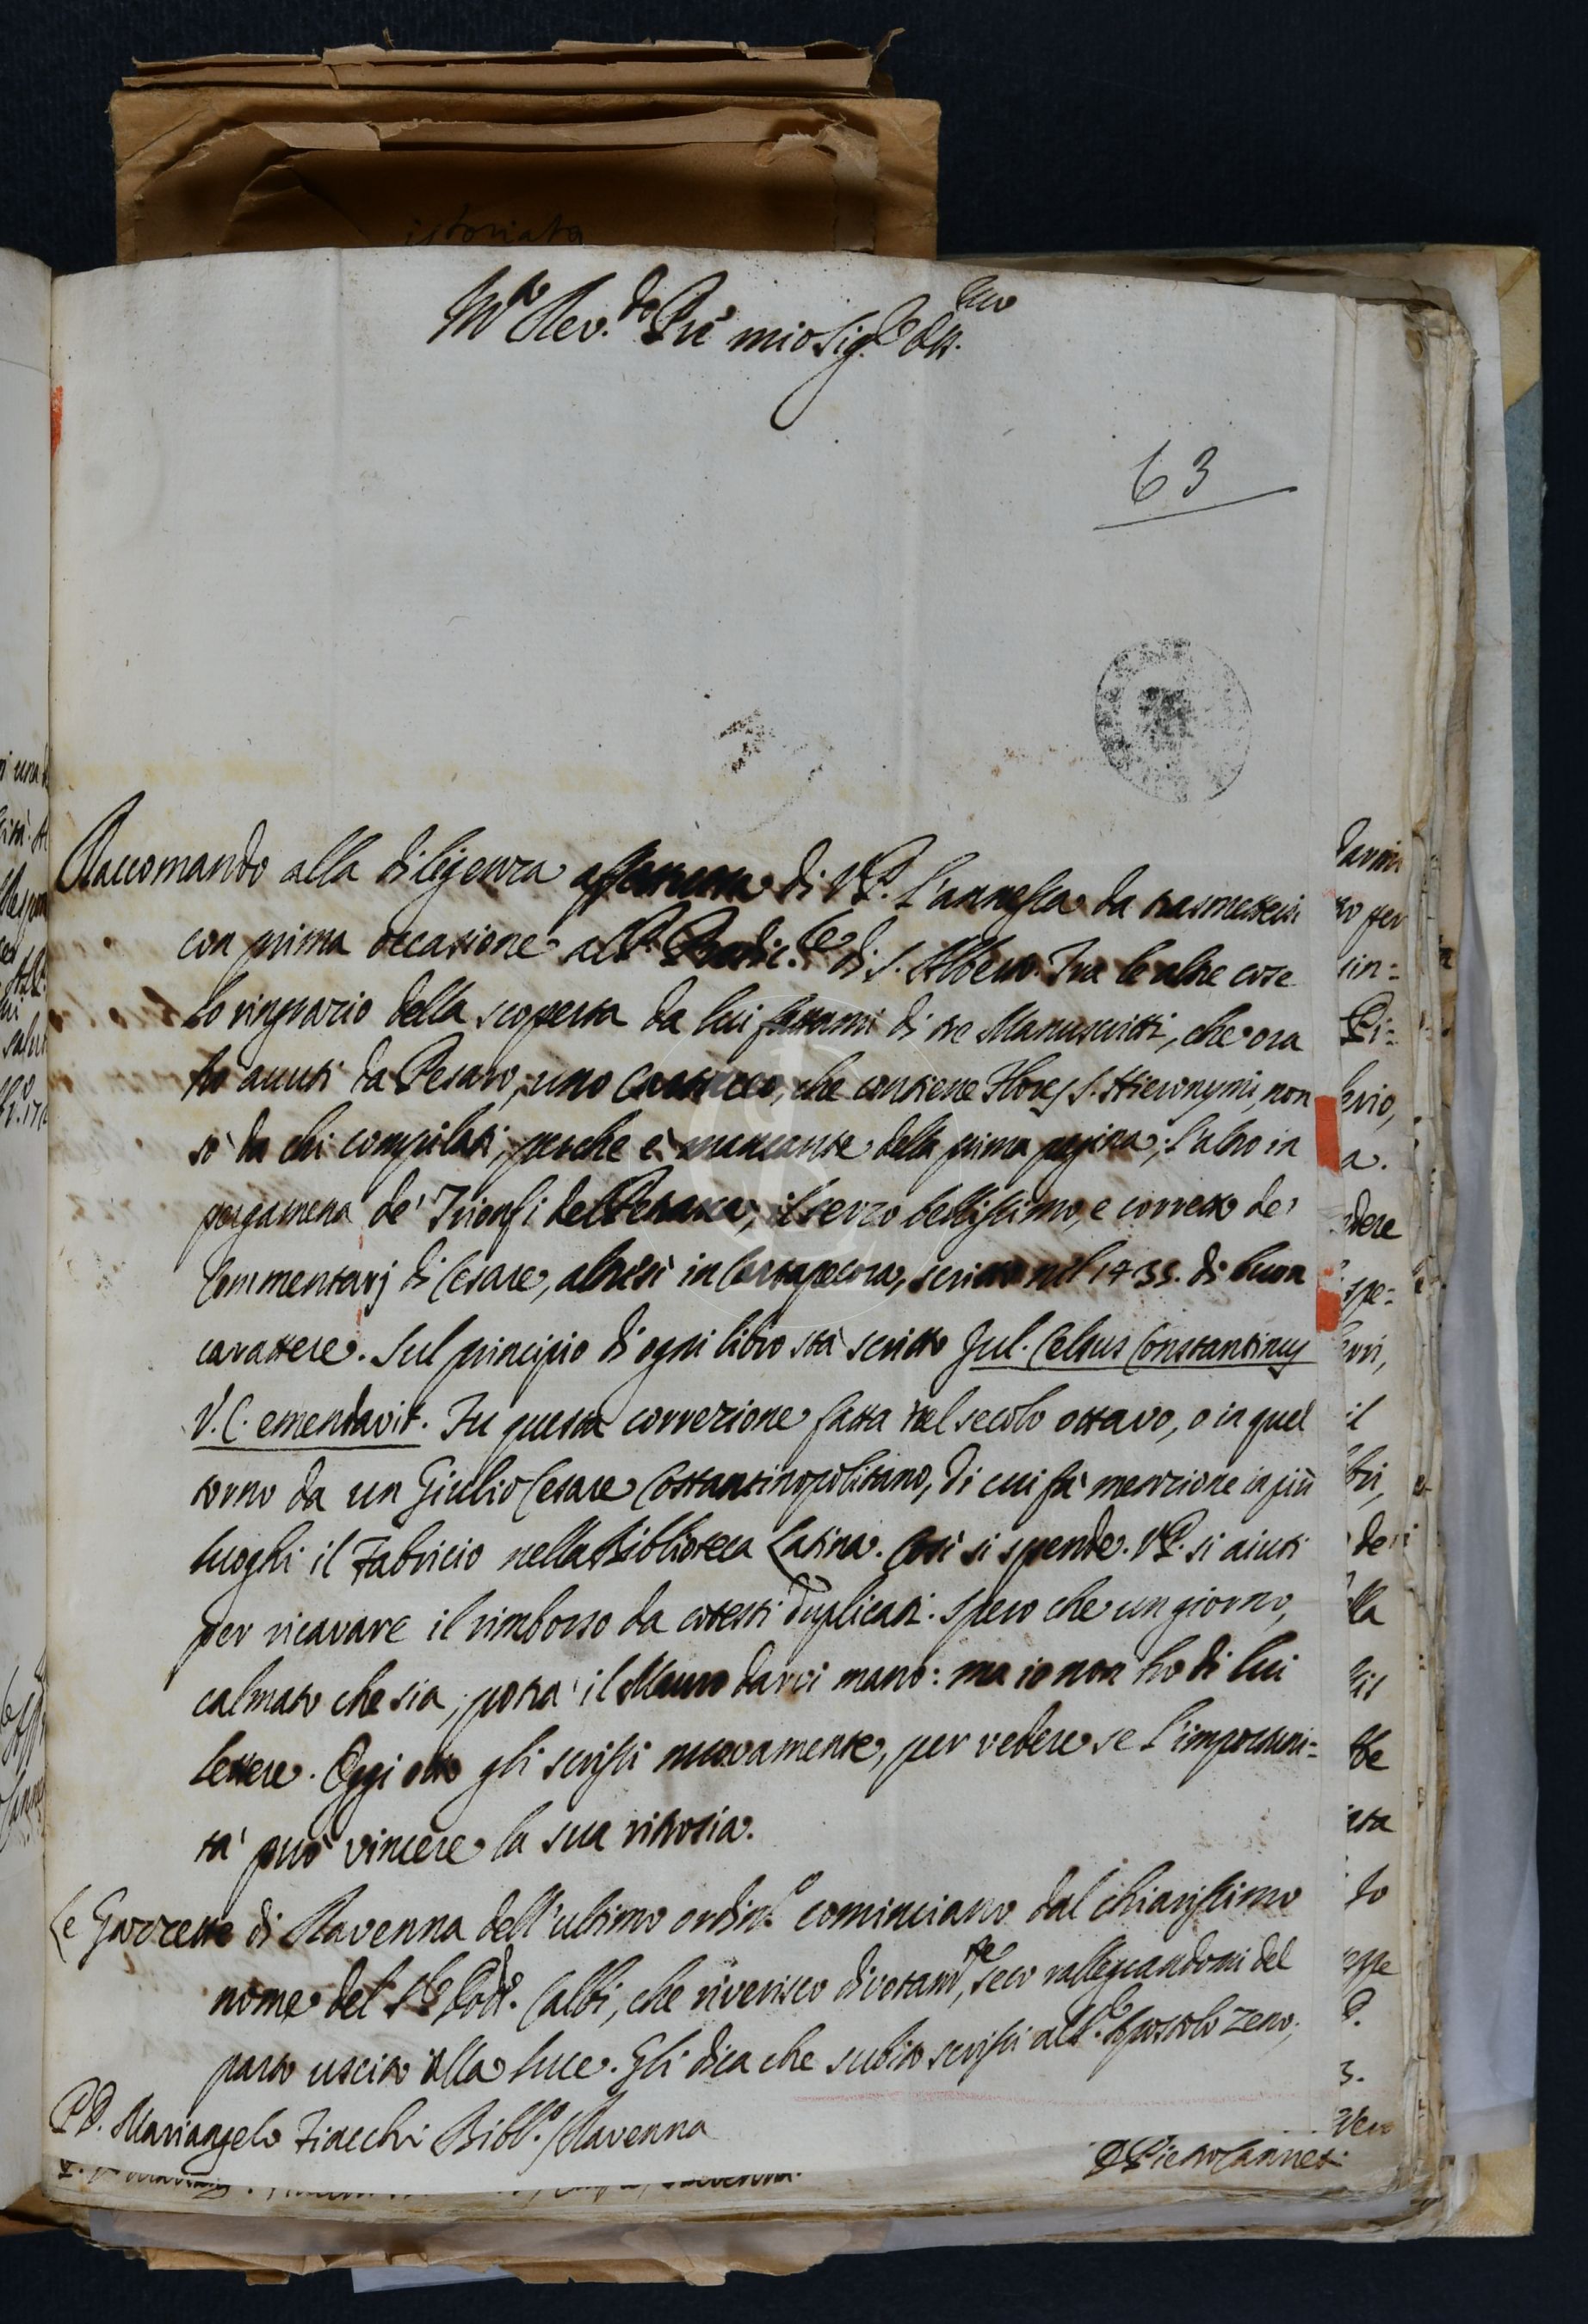 istoriata
M.to Rev.do P.re mio Sig.re Oss.mo
63
Raccomando alla diligenza di V.P. l'annessa da trasmettersi
con prima occasione al P. Predic.re di S. Alberto. Tra le altre cose
lo ringrazio della scoperta da lui fattami di tre Manuscritti, che ora
ho avuti da Pesaro, uno cartaceo, che contiene Flores S. Hieronymi, non
sò da chi compilati, perche è mancante della prima pagina; l'altro in
pergamena de' Trionfi del Petrarca; il terzo bellissimo, e corretto de'
Commentarj di Cesare, altresì in Cartapecora, scritto nel 1435. di buon
carattere. Sul principio di ogni libro stà scritto Jul. Celsus Constantinus
V.C. emendavit. Fu questa correzione fatta nel secolo ottavo, o in quel
torno da un Giulio Cesare Costantinopolitano, di cui fà menzione in più
luoghi il Fabricio nella Biblioteca Latina. Così si spende. V.P. si aiuti
per ricavare il rimborso da cotesti duplicati. Spero che un giorno,
calmato che sia, potrà il Mauro darci mano: ma io non ho di lui
lettere. Oggi otto gli scrissi nuovamente, per vedere se l'importuni=
tà può vincere la sua ritrosia.
Le Gazzette di Ravenna dell'ultimo ordin.o cominciano dal chiarissimo
nome del Sig. Calbi, che riverisco divotam.te, seco rallegrandomi del
parto uscito alla luce. Gli dica che subito scrissi al S.r Apostolo Zeno;
P.D. Mariangelo Fiacchi Bibl.o / Ravenna
D. Pietro Canneti